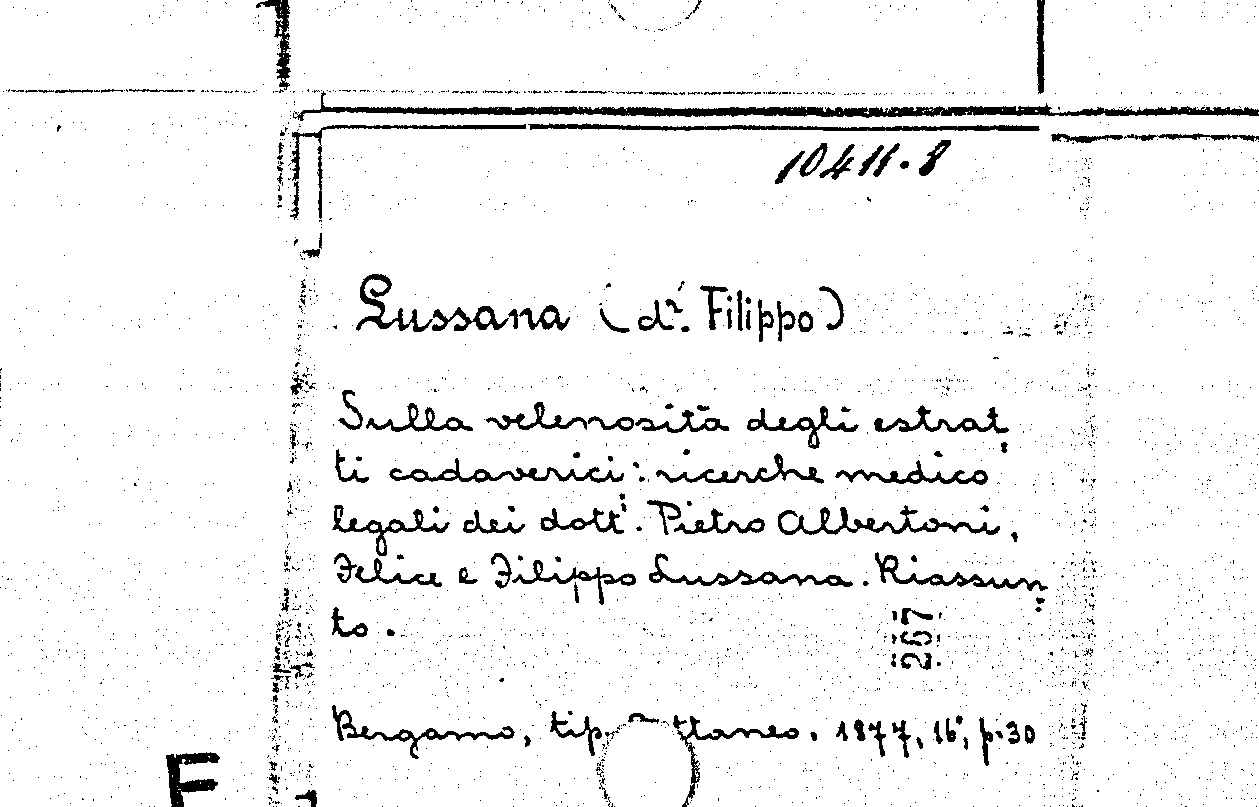 10411.8
Lussana (dr. Filippo)
Sulla velenosità degli estrat
ti cadaverici: ricerche medico
legali dei dott.i Pietro Albertoni,
Felice e Filippo Lussana. Riassun
to.
267
Bergamo, tip. ttaneo. 1877, 16°, p. 30
E